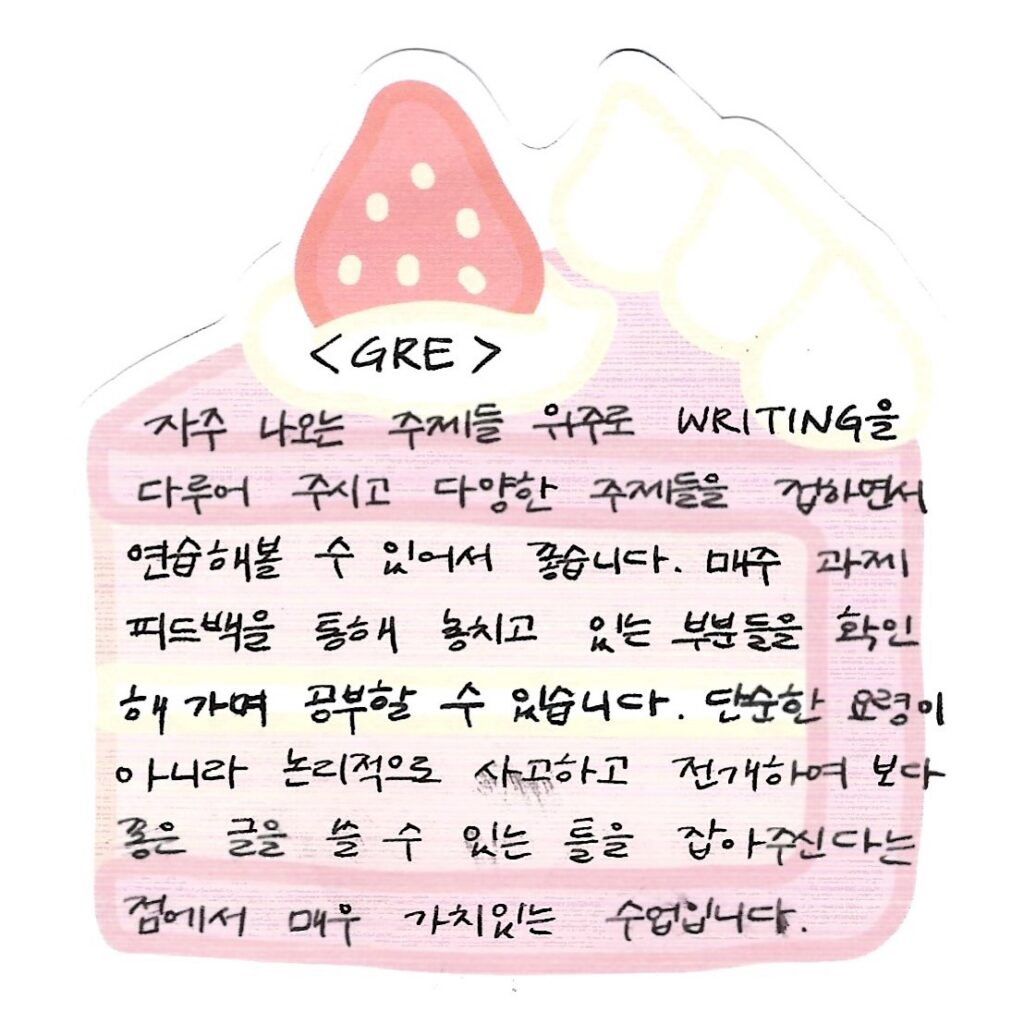 <GRE>
자주 나오는 주제들 위주로 WRITING을
다루어 주시고 다양한 주제들을 접하면서
연습해볼 수 있어서 좋습니다. 매주 과제
피드백을 통해 놓치고 있는 부분들을 확인
해 가며 공부할 수 있습니다. 단순한 요령이
아니라 논리적으로 사고하고 전개하여 보다
좋은 글을 쓸 수 있는 틀을 잡아주신다는
점에서 매우 가치있는 수업입니다.